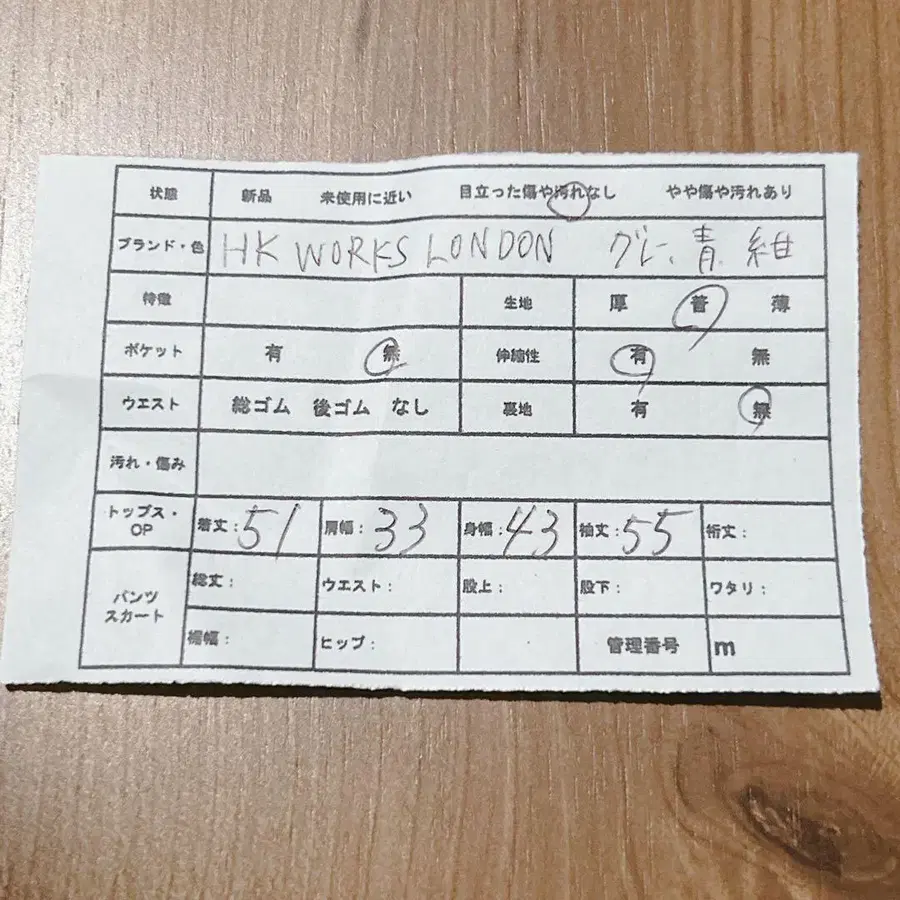 状態 新品 未使用に近い 目立った傷や汚れなし やや傷や汚れあり
ブランド・色 HK WORKS LONDON グレー、青、紺
特徴 生地 厚 普 薄
ポケット 有 無 伸縮性 有 無
ウエスト 総ゴム 後ゴム なし 裏地 有 無
汚れ・傷み
トップス・OP 着丈: 51 肩幅: 33 身幅: 43 袖丈: 55 裄丈:
パンツ スカート 総丈: ウエスト: 股上: 股下: ワタリ:
裾幅: ヒップ: 管理番号 m